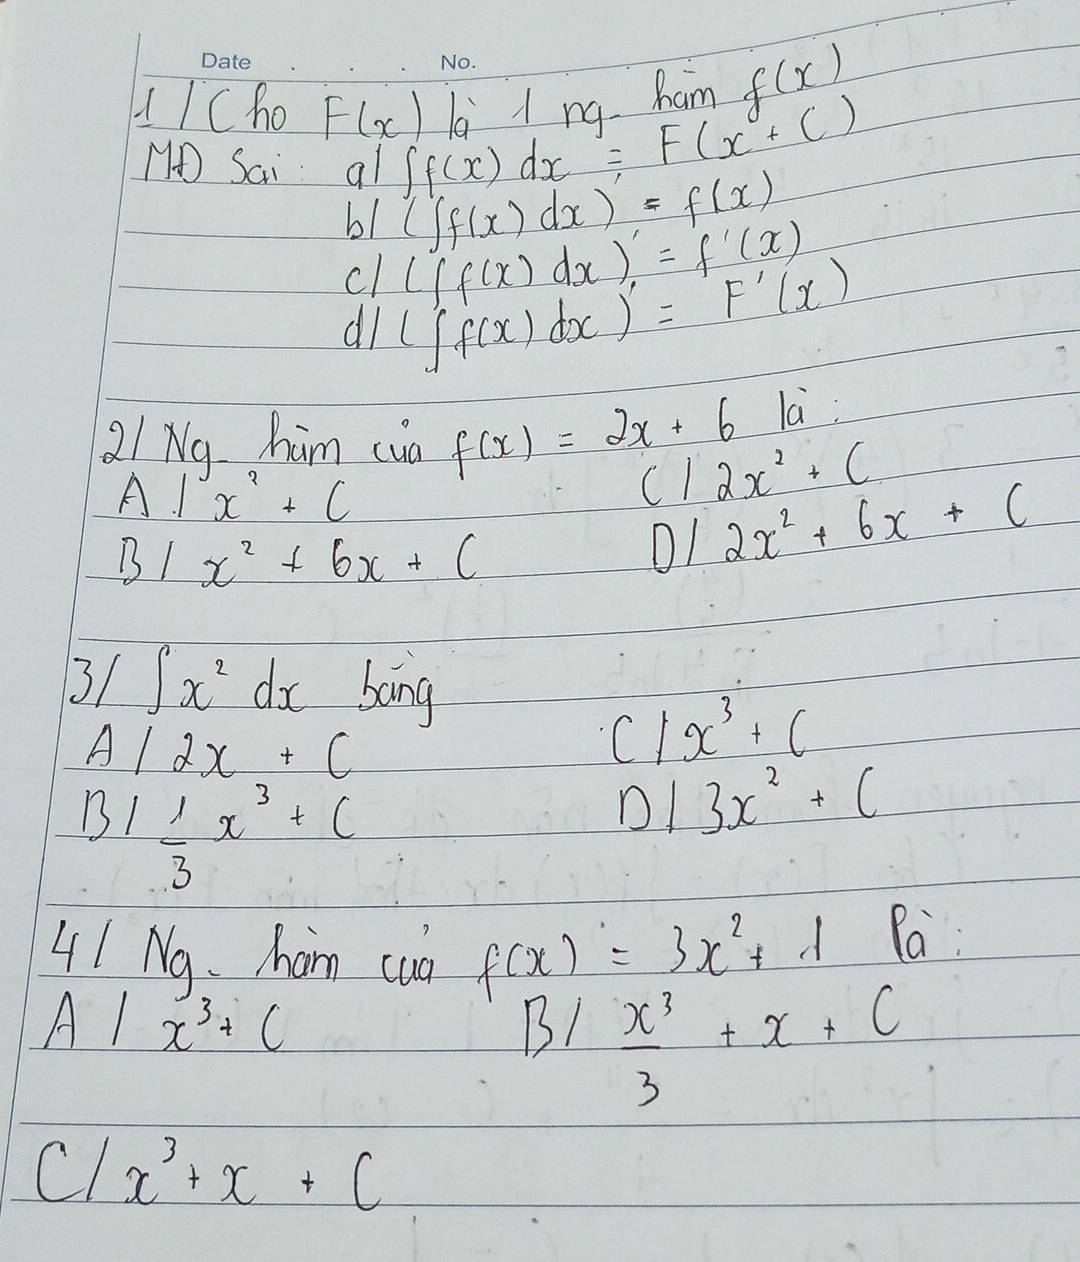 Date . . . No.
1/ Cho F(x) là 1 ng. hàm f(x)
MĐ Sai: a/ ∫f(x) dx = F(x + C)
b/ (∫f(x) dx)' = f(x)
c/ (∫f(x) dx)' = f'(x)
d/ (∫f(x) dx)' = F'(x)
2/ Ng. hàm của f(x) = 2x + 6 là:
A/ x² + C C/ 2x² + C
B/ x² + 6x + C D/ 2x² + 6x + C
3/ ∫x² dx bằng
A/ 2x + C C/ x³ + C
B/ 1/3 x³ + C D/ 3x² + C
4/ Ng. hàm của f(x) = 3x² + 1 là:
A/ x³ + C B/ x³/3 + x + C
C/ x³ + x + C